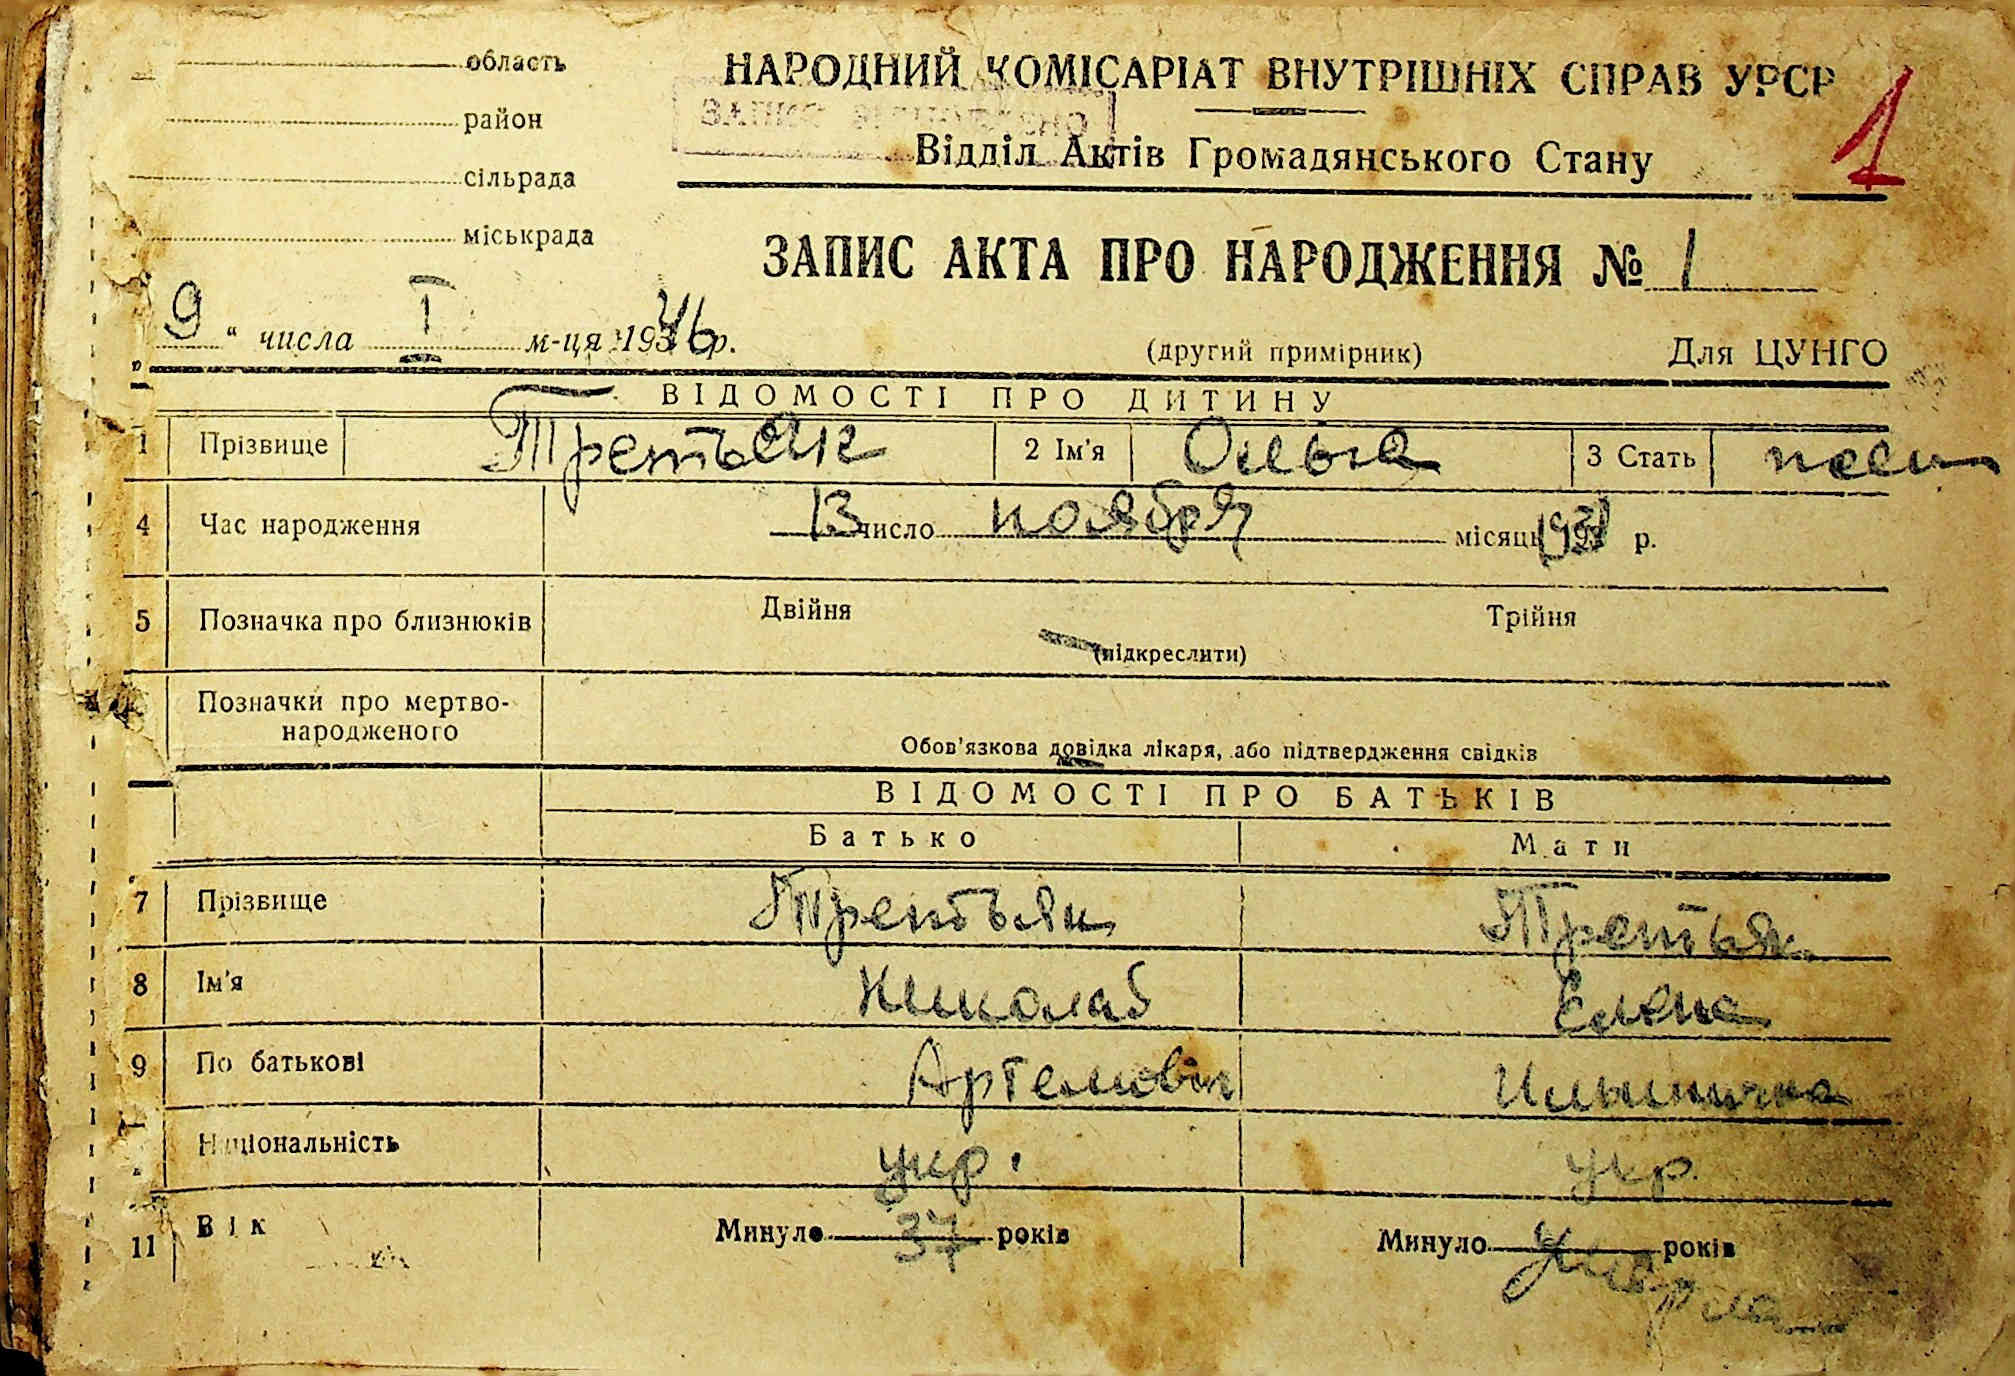 область
район
сільрада
міськрада
НАРОДНИЙ КОМІСАРІАТ ВНУТРІШНІХ СПРАВ УРСР
1
Відділ Актів Громадянського Стану
ЗАПИС АКТА ПРО НАРОДЖЕННЯ № 1
9 " числа I м-ця 1946 р.
(другий примірник) Для ЦУНГО
ВІДОМОСТІ ПРО ДИТИНУ
1 Прізвище Третьяк 2 Ім'я Ольга 3 Стать
4 Час народження 13 число ноября місяць р.
5 Позначка про близнюків Двійня Трійня
(підкреслити)
Позначки про мертво-
народженого
Обов'язкова довідка лікаря, або підтвердження свідків
ВІДОМОСТІ ПРО БАТЬКІВ
Батько Мати
7 Прізвище Третьяк Третьяк
8 Ім'я Николай Елена
9 По батькові Артемович Ильинична
Національність укр. укр.
11 Вік Минуло 37 років Минуло років
умерла